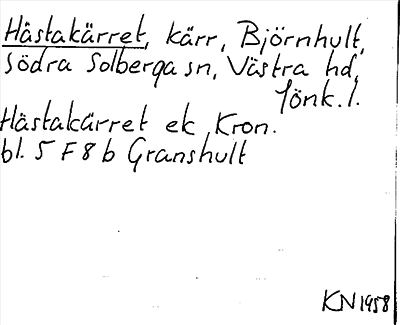 Hästakärret, kärr, Björnhult,
Södra Solberga sn, Västra hd,
Jönk. l.
Hästakärret ek Kron.
bl. 5 F 8 b Granshult
KN 1958